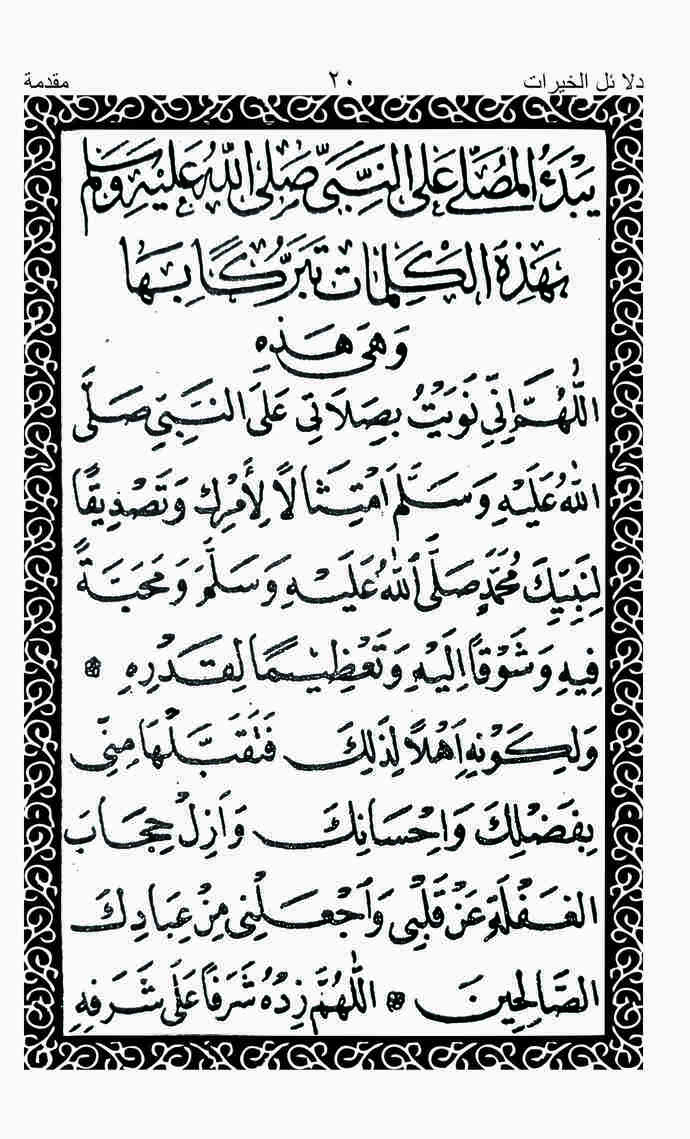 دلائل الخيرات ٢٠ مقدمة
يَبْدَءُ الْمُصَلِّي عَلَى النَّبِيِّ صَلَّى اللهُ عَلَيْهِ وَسَلَّم
بِهَذِهِ الْكَلِمَاتِ تَبَرُّكًا بِهَا
وَهِيَ هَذِهِ
اَللّٰهُمَّ اِنِّي نَوَيْتُ بِصِلَاتِي عَلَى النَّبِيِّ صَلَّى
اللهُ عَلَيْهِ وَسَلَّمَ اَمْتِثَالًا لِأَمْرِكَ وَتَصْدِيقًا
لِنَبِيِّكَ مُحَمَّدٍ صَلَّى اللهُ عَلَيْهِ وَسَلَّمَ وَمَحَبَّةً
فِيهِ وَشَوْقًا اِلَيْهِ وَتَعْظِيمًا لِقَدْرِهِ
وَلِكَوْنِهِ اَهْلًا لِذٰلِكَ فَتَقَبَّلْهَا مِنِّي
بِفَضْلِكَ وَاِحْسَانِكَ وَاَزِلْ حِجَابَ
الْغَفْلَةِ عَنْ قَلْبِي وَاجْعَلْنِي مِنْ عِبَادِكَ
الصَّالِحِينَ اَللّٰهُمَّ زِدْهُ شَرَفًا عَلَى شَرَفِهِ